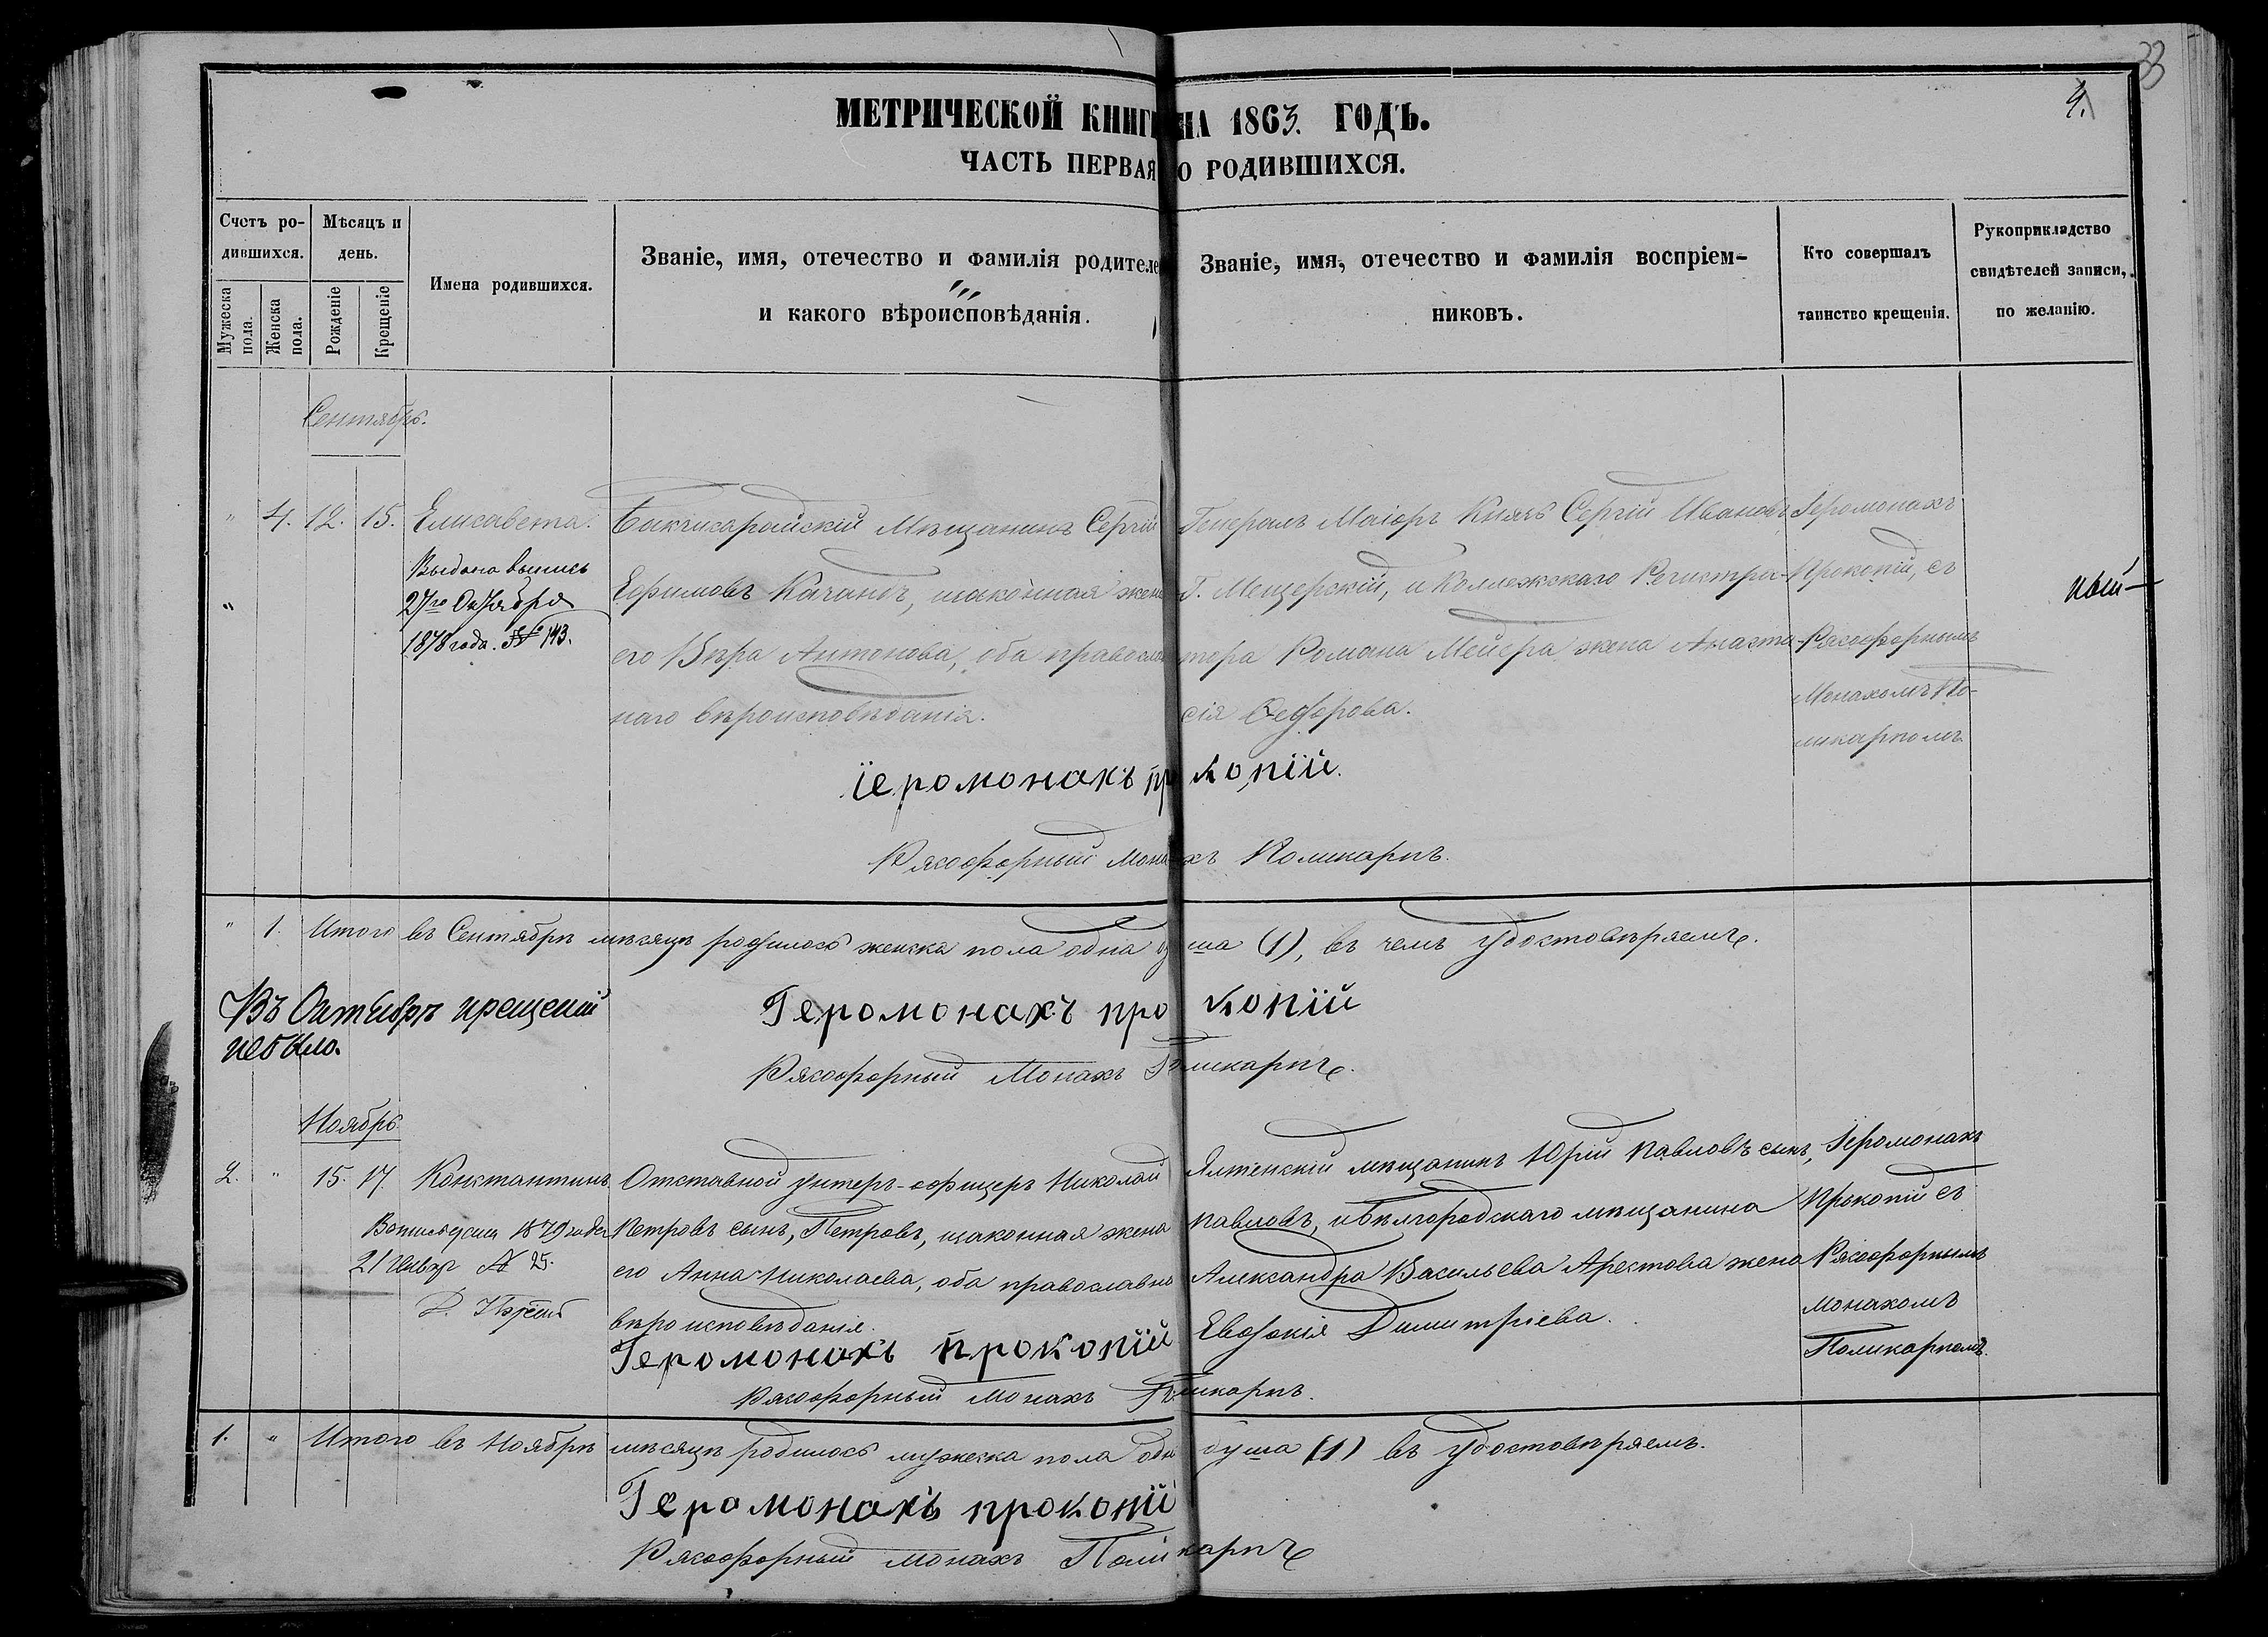 33
4.
МЕТРИЧЕСКОЙ КНИГИ НА 1863. ГОДЪ.
ЧАСТЬ ПЕРВАЯ О РОДИВШИХСЯ.
Счетъ ро-
дившихся.
Мужеска
пола.
Женска
пола.
Мѣсяцъ и
день.
Рожденіе
Крещеніе
Имена родившихся.
Званіе, имя, отечество и фамилія родителе
и какого вѣроисповѣданія.
Званіе, имя, отечество и фамилія воспріем-
никовъ.
Кто совершалъ
таинство крещенія.
Рукоприкладство
свидѣтелей записи,
по желанію.
Сентябрь.
" 4. 12. 15. Елисавета.
Выдана выпись
27го Октября
1878 года. № 143.
Бакчисарайскій Мѣщанинъ Сергій
Ефимовъ Качандъ, изаконная жена
его Вѣра Антонова, оба православ
наго вѣроисповѣданія.
Генералъ Маіоръ Князь Сергій Ивановъ
Г. Мещерскій, и Коллежскаго Регистра-
тора Романа Мейера жена Анаста-
сія Ѳедорова.
Іеромонахъ
Прокопій, съ
Рясофорнымъ
Монахомъ По-
ликарпомъ
Іеромонахъ прокопій.
Рясофорный Монахъ Поликарпъ.
" 1. Итого въ Сентябрѣ мѣсяцѣ родилось женска пола одна душа (1), въ чемъ удостовѣряемъ.
Въ Октябрѣ крещеній
небыло.
Іеромонахъ прокопій
Рясофорный Монахъ Поликарпъ.
Ноябрь.
2. " 15. 17. Константинъ
21 № 25.
Отставной унтеръ-офицеръ Николай
Петровъ сынъ, Петровъ, изаконная жена
его Анна Николаева, оба православна
вѣроисповѣданія.
Ялтенскій мѣщанинъ Юрій Павловъ сынъ,
Павловъ, и Бѣлгородскаго мѣщанина
Александра Васильева Арестова жена
Евдокія Димитріева.
Іеромонахъ
Прокопій съ
Рясофорнымъ
монахомъ
Поликарпомъ.
Іеромонахъ прокопій
Рясофорный монахъ Поликарпъ.
1. " Итого въ Ноябрѣ мѣсяцѣ родилось мужеска пола одна душа (1) въ удостовѣряемъ.
Іеромонахъ прокопій
Рясофорный монахъ Поликарпъ